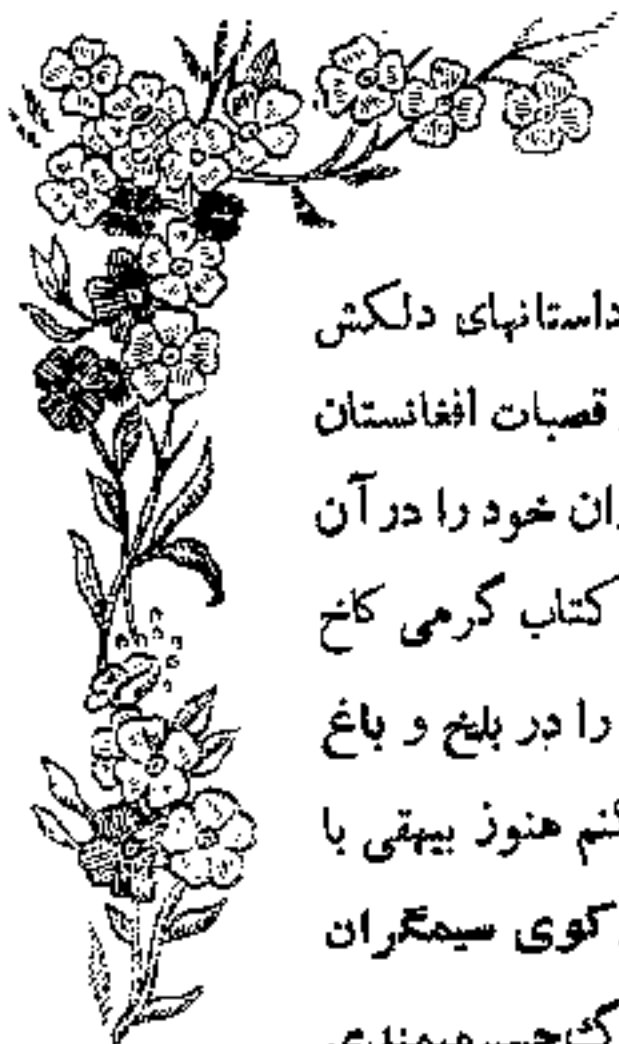 داستانهای دلکش
قصبات افغانستان
ان خود را در آن
کتاب گرمی کاخ
را در بلخ و باغ
کنم هنوز بیهقی با
کوی سیمگران